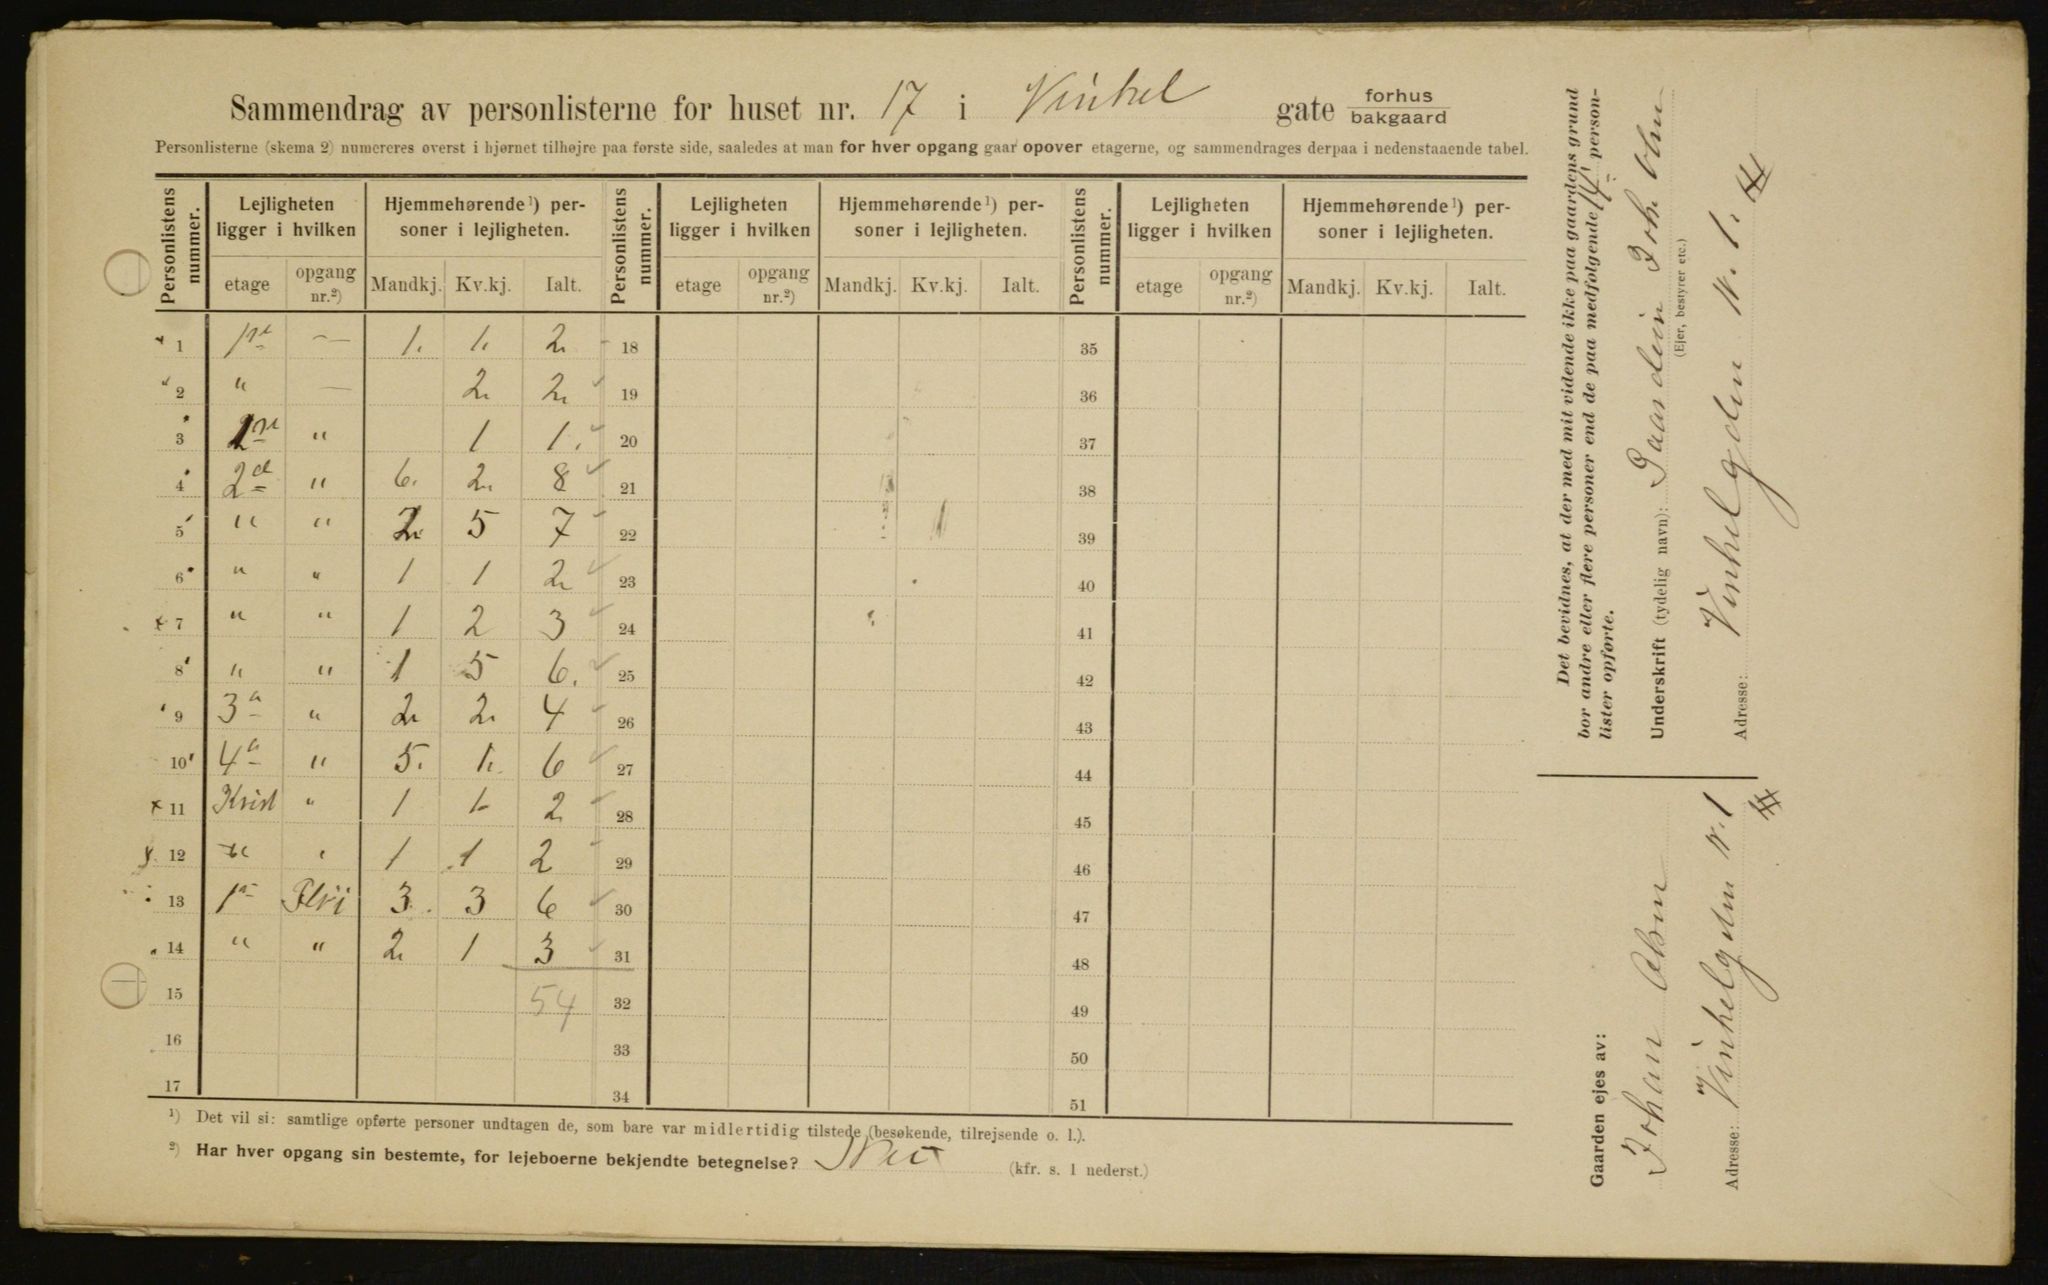 Sammendrag av personlisterne for huset nr. 17 i Vinkel gate forhus bakgaard
Personlisterne (skema 2) numereres øverst i hjørnet tilhøjre paa første side, saaledes at man for hver opgang gaar opover etagerne, og sammendrages derpaa i nedenstaaende tabel.
Personlistens nummer. Lejligheten ligger i hvilken Hjemmehørende¹) personer i lejligheten. Personlistens nummer. Lejligheten ligger i hvilken Hjemmehørende¹) personer i lejligheten. Personlistens nummer. Lejligheten ligger i hvilken Hjemmehørende¹) personer i lejligheten.
etage opgang nr.²) Mandkj. Kv.kj. Ialt. etage opgang nr.²) Mandkj. Kv.kj. Ialt. etage opgang nr.²) Mandkj. Kv.kj. Ialt.
1 1ste — 1. 1. 2. 18 35
2 " — 2. 2. 19 36
3 " 1 1. 20 37
4 2d " 6. 2. 8 21 38
5 " " 2. 5 7 22 39
6 " " 1 1 2. 23 40
7 " " 1 2 3 24 41
8 " " 1 5 6. 25 42
9 3a " 2. 2. 4 26 43
10 4a " 5. 1. 6 27 44
11 Krist " 1 1 2. 28 45
12 " 1 1 2 29 46
13 1a Fløi 3. 3 6 30 47
14 " " 2. 1 3 31 48
15 54 32 49
16 33 50
17 34 51
¹) Det vil si: samtlige opførte personer undtagen de, som bare var midlertidig tilstede (besøkende, tilrejsende o. l.).
²) Har hver opgang sin bestemte, for lejeboerne bekjendte betegnelse? Nei (kfr. s. 1 nederst.)
Det bevidnes, at der med mit vidende ikke paa gaardens grund
bor andre eller flere personer end de paa medfølgende 14 person-
lister opførte.
Underskrift (tydelig navn):
(Ejer, bestyrer etc.)
Adresse: Vinkelgden N. 1.
Gaarden ejes av:
Johan Olsen
Adresse: Vinkelgden N. 1